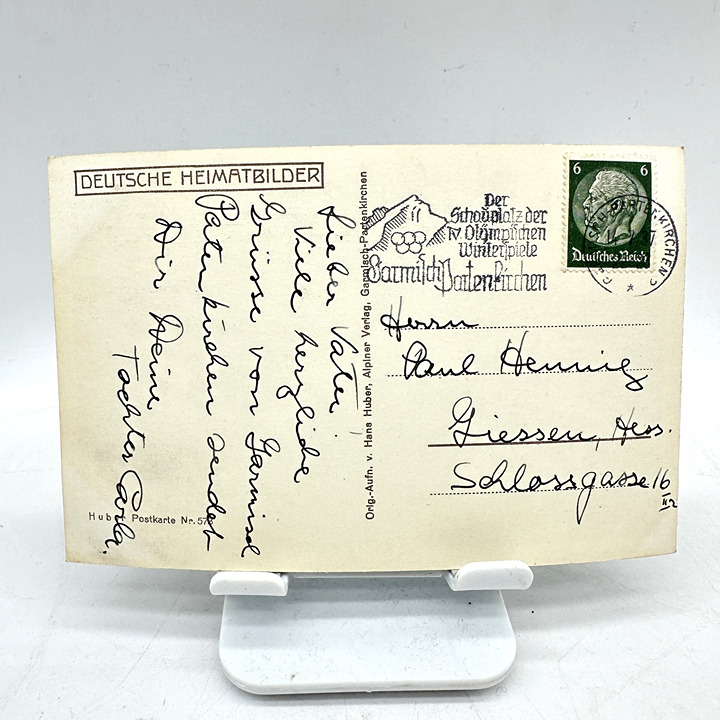 DEUTSCHE HEIMATBILDER
Lieber Vater!
Viele herzliche
Grüsse von Garmisch
Partenkirchen sendet
Dir Deine
Tochter Carla.
Huber Postkarte Nr. 573
Orig.-Aufn. v. Hans Huber, Alpiner Verlag, Garmisch-Partenkirchen
Der
Schauplatz der
IV. Olympischen
Winterspiele
Garmisch Partenkirchen
6 6
Deutsches Reich
PARTENKIRCHEN
Herrn
Paul Hennig
Giessen, Hess.
Schlossgasse 16